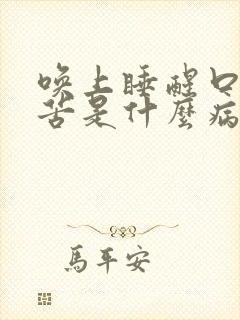 唤上睡醒口
苦是什麼病
馬平安